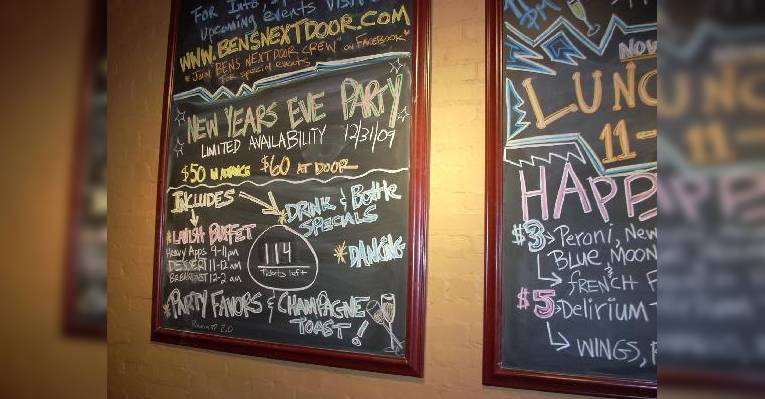 For Info,
Upcoming events visit
WWW.BENSNEXTDOOR.COM
*JOIN "BENS NEXTDOOR CREW" on FACEBOOK*
for special events
NEW YEARS EVE PARTY
LIMITED AVAILABILITY 12/31/09
$50 IN ADVANCE $60 AT DOOR
INCLUDES
*DRINK & Bottle
SPECIALS
*LAVISH BUFFET
HEAVY APPS 9-11pm
DESSERT 11-12am
BREAKFAST 12-2am
114
Tickets left
*DANCING
*PARTY FAVORS & CHAMPAGNE
TOAST!
2.0
PM
NOW
LUNC
11-
HAPP
$3 Peroni, New
BLUE MOON
& FRENCH F
$5 Delirium T
WINGS,